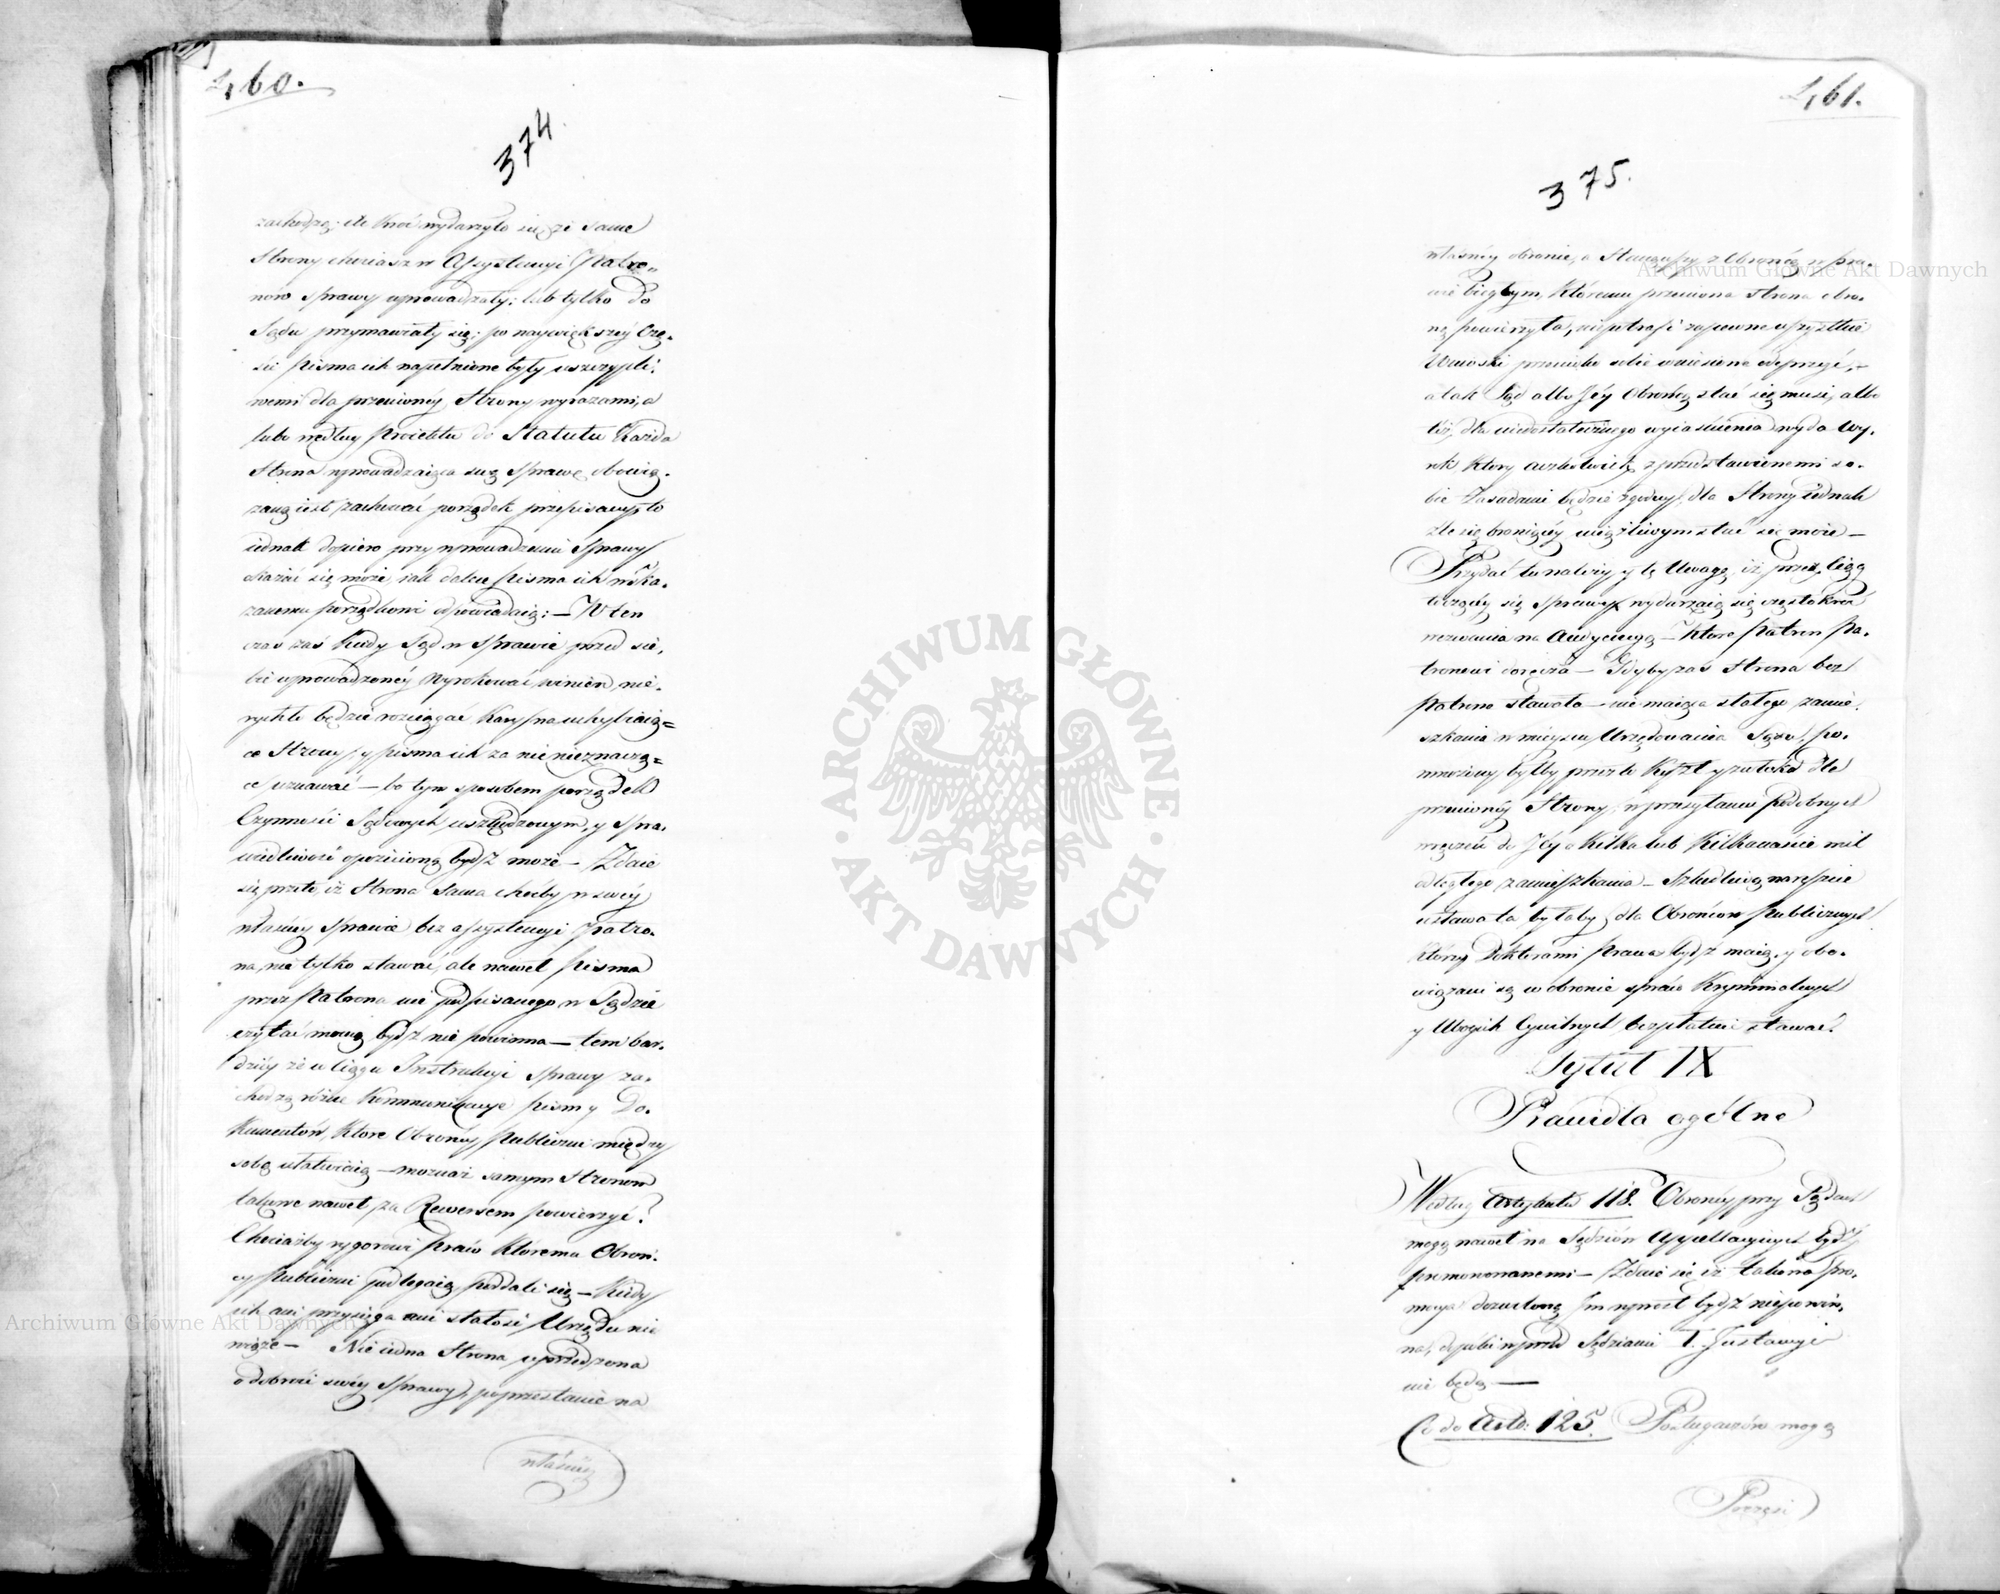 460.
374.
zachodzą; ile kroć wydarzyło się, że same
Strony chociasz w Assystencyi Patro„
now sprawy wprowadzały; lub tylko do
Sądu przymawiały się; po naywiększey Czę.
ści pisma ich napełnione były uszczypli„
wemi dla przeciwnéy Strony wyrazami, a
lubo według Proiektu do Statutu Każda
Strona wprowadzaiąca swą sprawę obowią.
zaną iest zachować porządek przepisany, to
iednak dopiero przy wprowadzeniu Sprawy
okazać się może iak dalece pisma ich wska.
zanemu porządkowi odpowiadaią; — W ten
czas zaś kiedy Sąd w sprawie przed sie„
bie wprowadzonéy Wyrokować winien, nie.
rychło będzie rozciągać Kary na uchybiaią=
ce Strony, y pisma ich za nic nieznaczą=
ce uznawać — bo tym sposobem porządek
Czynności Sądowych uszkodzonym, y Spra.
wiedliwość opóźnioną bydź może — Zdaie
się przeto, iż Strona sama choćby w swéy
własnéy Sprawie bez assystencyi Patro.
na, nie tylko stawać, ale nawet pisma
przez Patrona nie podpisanego w Sądzie
czytać mocną bydź nie powinna — tem bar.
dziéy że w ciągu Instrukcyi Sprawy za.
chodzą różne Kommunikacye pism y Do.
kumentów, które Obrońcy Publiczni między
sobą ułatwiaią — możnaż samym Stronom
takowe nawet za Rewersem powierzyć?
Chociażby rygorowi praw któremu Obroń.
cy Publiczni podlegaią poddali się — Kiedy
ich ani przysięga ani stałość Urzędu nie
wiąże — Nie iedna Strona uprzedzona
o dobroci swéy Sprawy, poprzestanie na
własnéy
461.
375.
własnéy obronie, a Stanąwszy z Obrońcą w pra.
wie biegłym, któremu przeciwna strona obro.
nę powierzyła, niepotrafi zapewne wszystkie
Wnioski przeciwko sobie wniesione odeprzeć, —
a tak Sąd albo Jéy Obrońcą stać się musi, albo
też, dla niedostatecznego wyiaśnienia wyda Wy.
rok który aczkolwiek z przedstawionemi so.
bie zasadami będzie zgodny, dla Strony iednak
źle się broniącéy uciążliwym stać się może —
Przydać tu należy y tę Uwagę, iż przez ciąg
toczącéy się Sprawy wydarzaią się częstokroć
wezwania na Audyencyą — które Patron Pa.
tronowi doręcza — Gdyby zaś Strona bez
Patrona stawała — nie maiąca stałego zamie„
szkania w mieyscu Urzędowania Sądu, po.
mnożony byłby przez to Koszt y zwłoka dla
przeciwnéy Strony, w przesyłaniu podobnych
wręczeń do Jéy o kilka lub kilkanaście mil
odległego zamieszkania — Szkodliwą nareszcie
ustawa ta byłaby dla Obrońców Publicznych
którzy Doktorami Prawa bydź maią, y obo.
wiązani są w obronie spraw Kryminalnych
y Ubogich Cywilnych bezpłatnie stawać.
Tytuł IX
Prawidła ogólne
Według Artykułu 118. Obrońcy przy Sądach
mogą nawet na Sędziów Appellacyinych bydź
promowowanemi — Zdaie się iż takowa Pro.
mocya dozwoloną Im wprost bydź niepowin„
na, dopóki wprzód Sędziami I. Instancyi
nie będą —
Co do Arto: 125. Posługaczów mogą